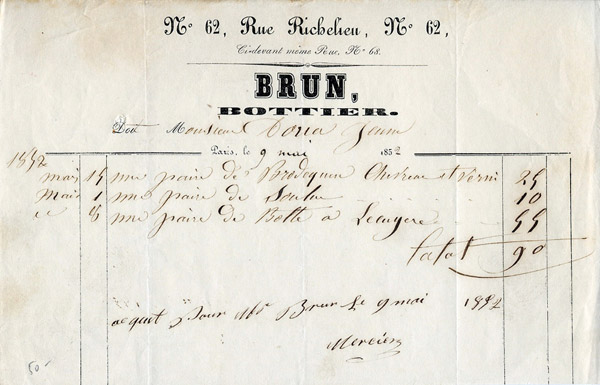 No 62, Rue Richelieu, No 62,
Ci-devant même Rue, No 68.
BRUN,
BOTTIER.
Doit Monsieur Doria
Paris, le 9 mai 1852
1852
mars 15 une paire de Brodequin Chevreau et Verni 25
Mai 1 une paire de Soulier 10
8 une paire de Botte a 55
total 90
acquit pour Mr Brun Le 9 mai 1852
Mercier
50